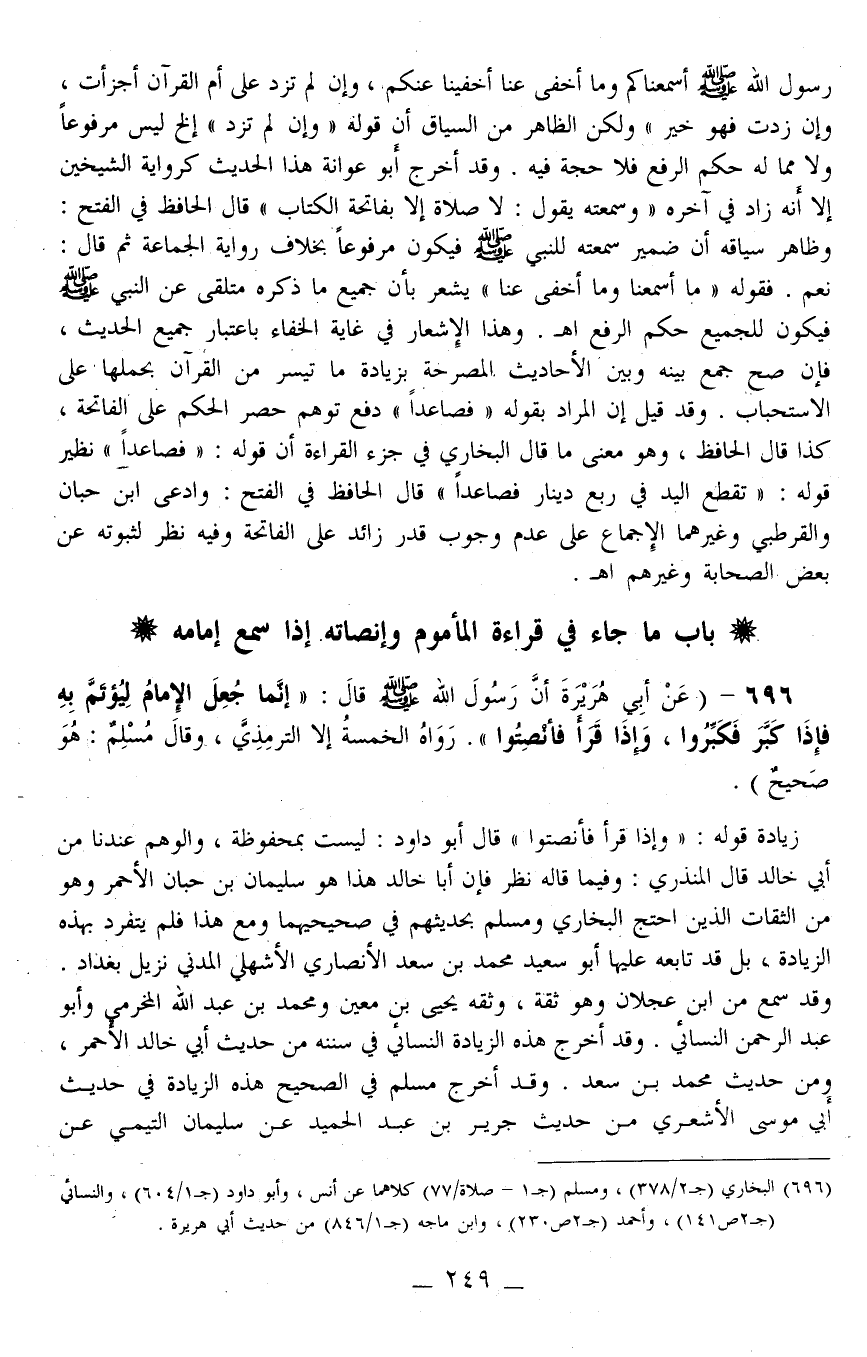 رسول الله ﷺ أسمعناكم وما أخفى عنا أخفينا عنكم ، وإن لم تزد على أم القرآن أجزأت ،
وإن زدت فهو خير » ولكن الظاهر من السياق أن قوله « وإن لم تزد » إلخ ليس مرفوعاً
ولا مما له حكم الرفع فلا حجة فيه . وقد أخرج أبو عوانة هذا الحديث كرواية الشيخين
إلا أنه زاد في آخره « وسمعته يقول : لا صلاة إلا بفاتحة الكتاب » قال الحافظ في الفتح :
وظاهر سياقه أن ضمير سمعته للنبي ﷺ فيكون مرفوعاً بخلاف رواية الجماعة ثم قال :
نعم . فقوله « ما أسمعنا وما أخفى عنا » يشعر بأن جميع ما ذكره متلقى عن النبي ﷺ
فيكون للجميع حكم الرفع اهـ . وهذا الإشعار في غاية الخفاء باعتبار جميع الحديث ،
فإن صح جمع بينه وبين الأحاديث المصرحة بزيادة ما تيسر من القرآن بحملها على
الاستحباب . وقد قيل إن المراد بقوله « فصاعداً » دفع توهم حصر الحكم على الفاتحة ،
كذا قال الحافظ ، وهو معنى ما قال البخاري في جزء القراءة أن قوله : « فصاعداً » نظير
قوله : « تقطع اليد في ربع دينار فصاعداً » قال الحافظ في الفتح : وادعى ابن حبان
والقرطبي وغيرهما الإجماع على عدم وجوب قدر زائد على الفاتحة وفيه نظر لثبوته عن
بعض الصحابة وغيرهم اهـ .
❋ باب ما جاء في قراءة المأموم وإنصاته إذا سمع إمامه ❋
٦٩٦ – ( عَنْ أبِي هُرَيْرَةَ أنَّ رَسُولَ الله ﷺ قالَ : « إنَّما جُعِلَ الإمامُ لِيُؤتَمَّ بِهِ
فإذَا كَبَّرَ فَكَبِّرُوا ، وَإذَا قَرَأَ فأنْصِتُوا » . رَوَاهُ الخمسةُ إلا الترمذِيَّ ، وقالَ مُسْلِمٌ : هُوَ
صَحيحٌ ) .
زيادة قوله : « وإذا قرأ فأنصتوا » قال أبو داود : ليست بمحفوظة ، والوهم عندنا من
أبي خالد قال المنذري : وفيما قاله نظر فإن أبا خالد هذا هو سليمان بن حبان الأحمر وهو
من الثقات الذين احتج البخاري ومسلم بحديثهم في صحيحيهما ومع هذا فلم يتفرد بهذه
الزيادة ، بل قد تابعه عليها أبو سعيد محمد بن سعد الأنصاري الأشهلي المدني نزيل بغداد .
وقد سمع من ابن عجلان وهو ثقة ، وثقه يحيى بن معين ومحمد بن عبد الله المخرمي وأبو
عبد الرحمن النسائي . وقد أخرج هذه الزيادة النسائي في سننه من حديث أبي خالد الأحمر ،
ومن حديث محمد بن سعد . وقد أخرج مسلم في الصحيح هذه الزيادة في حديث
أبي موسى الأشعري من حديث جرير بن عبد الحميد عن سليمان التيمي عن
(٦٩٦) البخاري (جـ٣٧٨/٢) ، ومسلم (جـ١ – صلاة/٧٧) كلاهما عن أنس ، وأبو داود (جـ٦٠٤/١) ، والنسائي
(جـ٢ص١٤١) ، وأحمد (جـ٢ص٢٣٠) ، وابن ماجه (جـ٨٤٦/١) من حديث أبي هريرة .
— ٢٤٩ —